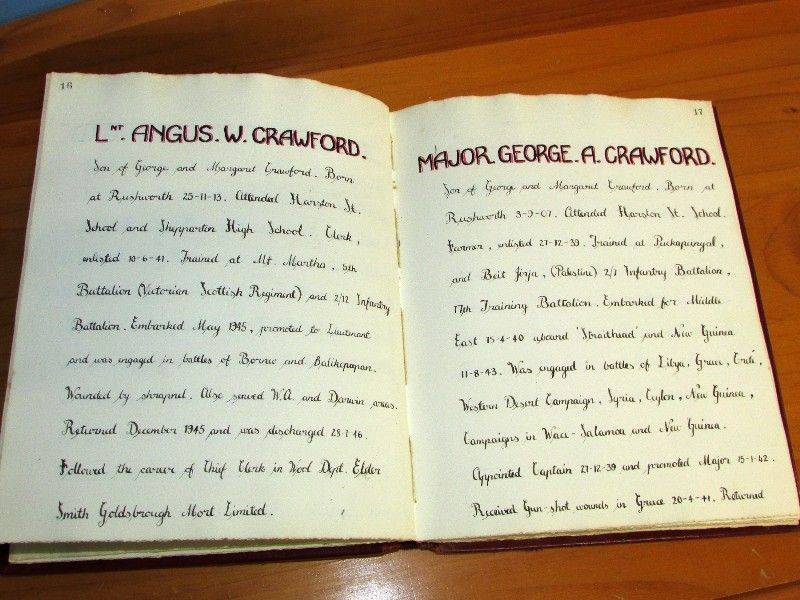 16
LNT. ANGUS. W. CRAWFORD.
Son of George and Margaret Crawford. Born
at Rushworth 25-11-13. Attended Harston St.
School and Shepparton High School. Clerk,
enlisted 10-6-41. Trained at Mt. Martha, 5th
Battalion (Victorian Scottish Regiment) and 2/12 Infantry
Battalion. Embarked May 1945, promoted to Lieutenant
and was engaged in battles of Borneo and Balikpapan.
Wounded by shrapnel. Also served W.A. and Darwin areas.
Returned December 1945 and was discharged 28-1-46.
Followed the career of Chief Clerk in Wool Dept. Elder
Smith Goldsbrough Mort Limited.
17
MAJOR GEORGE. A. CRAWFORD.
Son of George and Margaret Crawford. Born at
Rushworth 3-9-07. Attended Harston St. School.
Farmer, enlisted 27-12-39. Trained at Puckapunyal,
and Beit Jirja, (Palestine) 2/7 Infantry Battalion,
17th Training Battalion. Embarked for Middle
East 15-4-40 aboard 'Straithead' and New Guinea
11-8-43. Was engaged in battles of Libya, Greece, Crete,
Western Desert Campaign, Syria, Ceylon, New Guinea,
Campaigns in Wau-Salamoa and New Guinea.
Appointed Captain 27-12-39 and promoted Major 15-1-42.
Received Gun-shot wounds in Greece 20-4-41. Returned